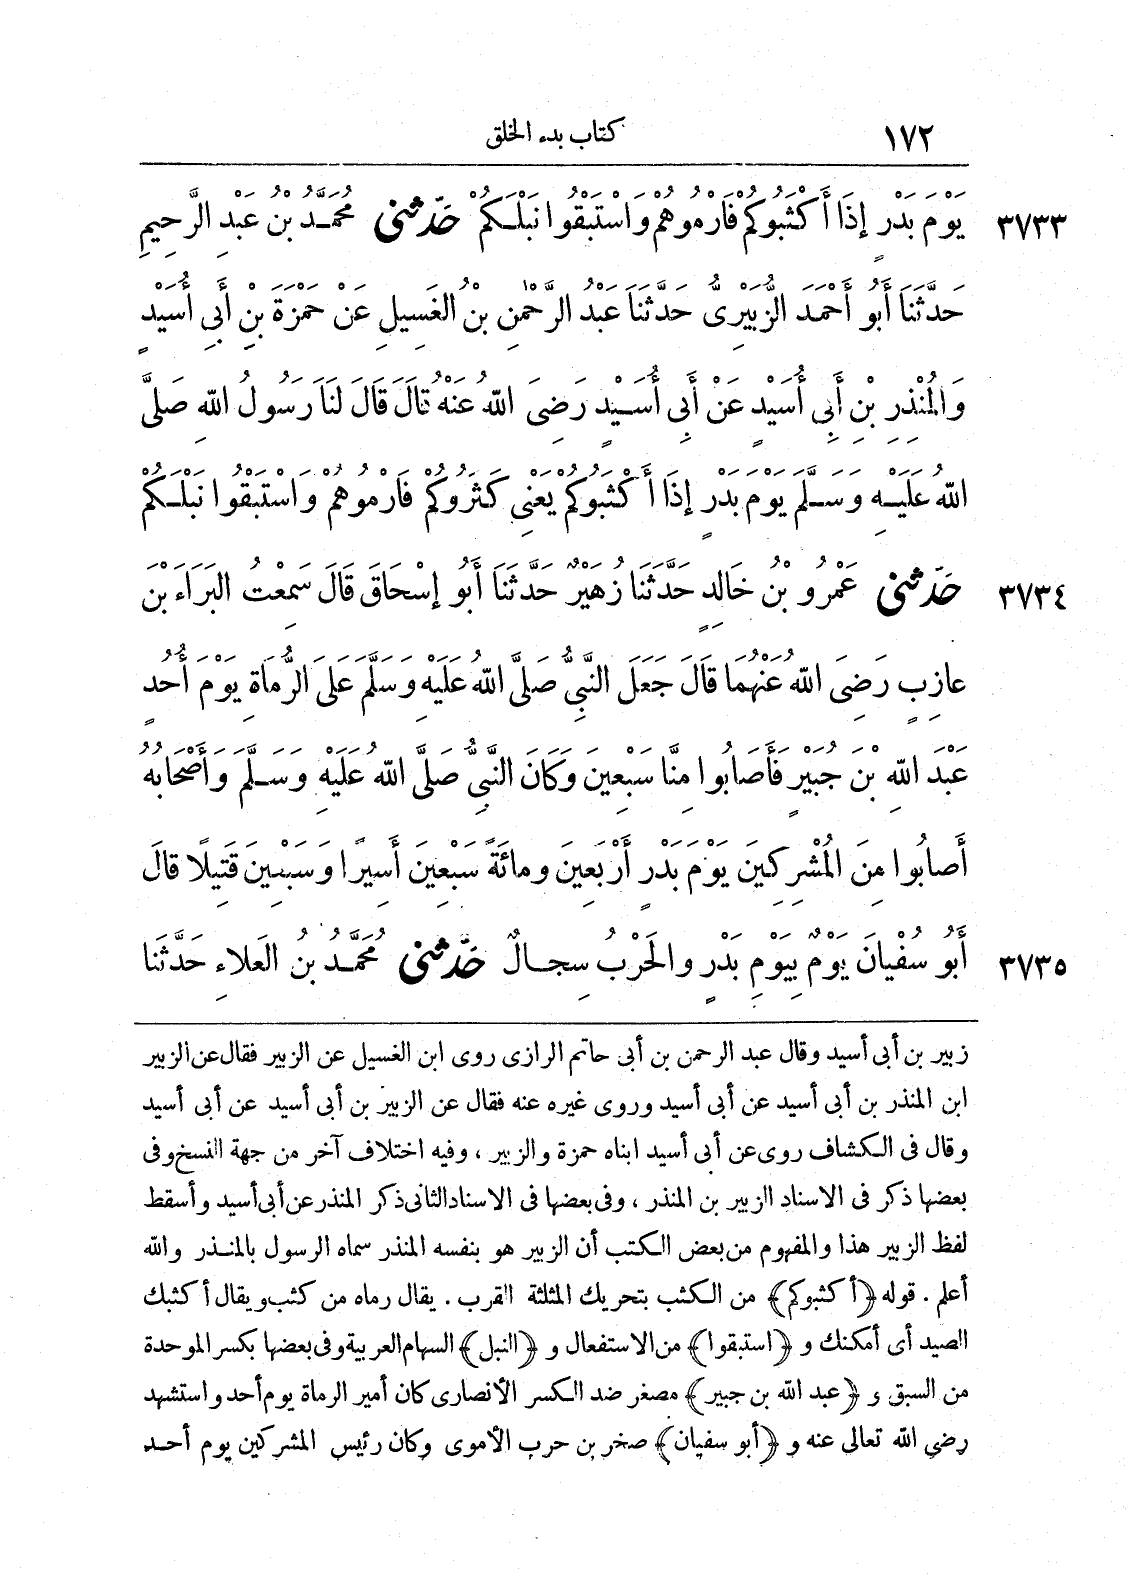 ١٧٢ كتاب بدء الخلق
٣٧٣٣ يَوْمَ بَدْرٍ إِذَا أَكْثَبُوكُمْ فَارْمُوهُمْ وَاسْتَبْقُوا نَبْلَكُمْ حَدَّثَنِى مُحَمَّدُ بْنُ عَبْدِ الرَّحِيمِ
حَدَّثَنَا أَبُو أَحْمَدَ الزُّبَيْرِىُّ حَدَّثَنَا عَبْدُ الرَّحْمٰنِ بْنُ الغَسِيلِ عَنْ حَمْزَةَ بْنِ أَبِى أُسَيْدٍ
وَالمُنْذِرِ بْنِ أَبِى أُسَيْدٍ عَنْ أَبِى أُسَيْدٍ رَضِىَ اللهُ عَنْهُ قَالَ قَالَ لَنَا رَسُولُ اللهِ صَلَّى
اللهُ عَلَيْهِ وَسَلَّمَ يَوْمَ بَدْرٍ إِذَا أَكْثَبُوكُمْ يَعْنِى كَثَرُوكُمْ فَارْمُوهُمْ وَاسْتَبْقُوا نَبْلَكُمْ
٣٧٣٤ حَدَّثَنِى عَمْرُو بْنُ خَالِدٍ حَدَّثَنَا زُهَيْرٌ حَدَّثَنَا أَبُو إِسْحَاقَ قَالَ سَمِعْتُ البَرَاءَ بْنَ
عَازِبٍ رَضِىَ اللهُ عَنْهُمَا قَالَ جَعَلَ النَّبِىُّ صَلَّى اللهُ عَلَيْهِ وَسَلَّمَ عَلَى الرُّمَاةِ يَوْمَ أُحُدٍ
عَبْدَ اللهِ بْنَ جُبَيْرٍ فَأَصَابُوا مِنَّا سَبْعِينَ وَكَانَ النَّبِىُّ صَلَّى اللهُ عَلَيْهِ وَسَلَّمَ وَأَصْحَابُهُ
أَصَابُوا مِنَ المُشْرِكِينَ يَوْمَ بَدْرٍ أَرْبَعِينَ ومائَةً سَبْعِينَ أَسِيرًا وَسَبْعِينَ قَتِيلًا قَالَ
٣٧٣٥ أَبُو سُفْيَانَ يَوْمٌ بِيَوْمِ بَدْرٍ والحَرْبُ سِجَالٌ حَدَّثَنِى مُحَمَّدُ بنُ العَلَاءِ حَدَّثَنَا
زبير بن أبى أسيد وقال عبد الرحمن بن أبى حاتم الرازى روى ابن الغسيل عن الزبير فقال عن الزبير
ابن المنذر بن أبى أسيد عن أبى أسيد وروى غيره عنه فقال عن الزبير بن أبى أسيد عن أبى أسيد
وقال فى الكشاف روى عن أبى أسيد ابناه حمزة والزبير ، وفيه اختلاف آخر من جهة النسخ وفى
بعضها ذكر فى الاسناد الزبير بن المنذر ، وفى بعضها فى الاسناد الثانى ذكر المنذر عن أبى أسيد وأسقط
لفظ الزبير هذا والمفهوم من بعض الكتب أن الزبير هو بنفسه المنذر سماه الرسول بالمنذر والله
أعلم . قوله ﴿أكثبوكم﴾ من الكثب بتحريك المثلثة القرب . يقال رماه من كثب ويقال أكثبك
الصيد أى أمكنك و ﴿استبقوا﴾ من الاستفعال و ﴿النبل﴾ السهام العربية وفى بعضها بكسر الموحدة
من السبق و ﴿عبد الله بن جبير﴾ مصغر ضد الكسر الأنصارى كان أمير الرماة يوم أحد واستشهد
رضى الله تعالى عنه و ﴿أبو سفيان﴾ صخر بن حرب الأموى وكان رئيس المشركين يوم أحد